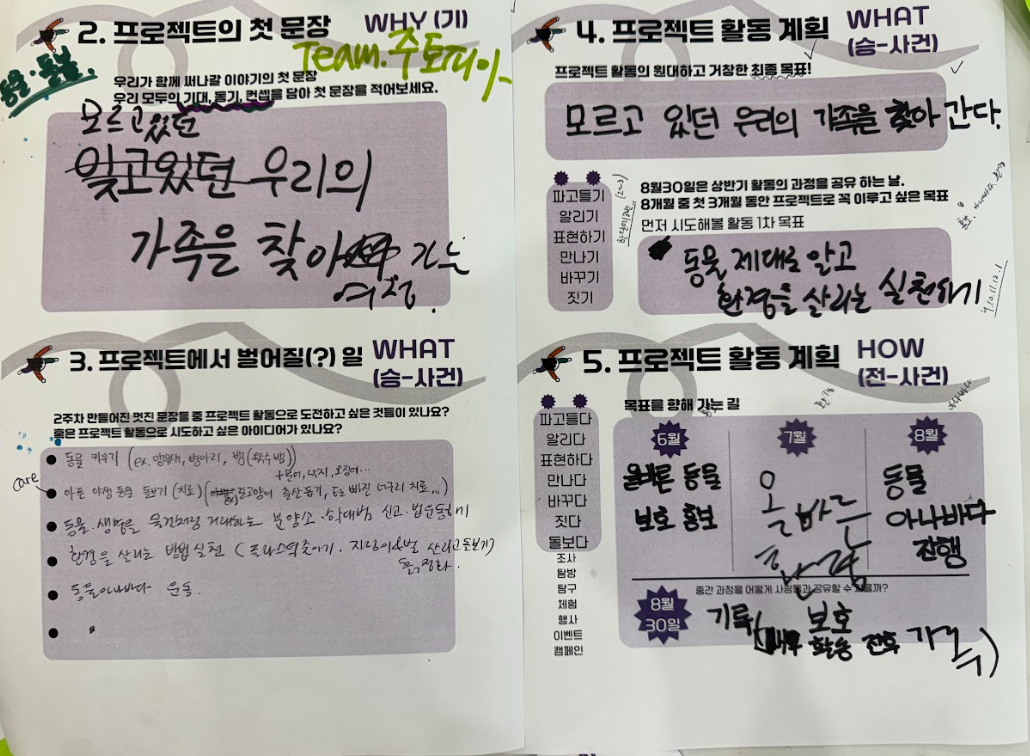 2. 프로젝트의 첫 문장
WHY (기)
Team.주토피아
동물·돌봄
우리가 함께 써나갈 이야기의 첫 문장
우리 모두의 기대, 동기, 컨셉을 담아 첫 문장을 적어보세요.
모르고있던
잊고있던 우리의
가족을 찾아 가는
여정.
3. 프로젝트에서 벌어질(?) 일
WHAT
(승-사건)
2주차 만들어진 멋진 문장들 중 프로젝트 활동으로 도전하고 싶은 것들이 있나요?
혹은 프로젝트 활동으로 시도하고 싶은 아이디어가 있나요?
동물 키우기 (ex. 앵무새, 병아리, 뱀(옥수수뱀))
+문어, 낙지, 오징어...
care
아픈 야생 동물 돌보기 (치료) ( 길고양이 출산 돕기, 털 빠진 너구리 치료,...)
동물·생명을 물건처럼 거래하는 분양소·학대범 신고·법운동하기
환경을 살리는 방법 실천 ( 플라스틱줄이기. 지렁이&벌 살리고돌보기)
동물아나바다 운동.
4. 프로젝트 활동 계획
WHAT
(승-사건)
프로젝트 활동의 원대하고 거창한 최종 목표!
모르고 있던 우리의 가족을 찾아 간다.
파고들기
알리기
표현하기
만나기
바꾸기
짓기
8월30일은 상반기 활동의 과정을 공유 하는 날.
8개월 중 첫 3개월 동안 프로젝트로 꼭 이루고 싶은 목표
먼저 시도해볼 활동 1차 목표
동물 제대로 알고
환경을 살리는 실천하기
9.10.11.12.1
5. 프로젝트 활동 계획
HOW
(전-사건)
목표를 향해 가는 길
파고들다
알리다
표현하다
만나다
바꾸다
짓다
돌보다
조사
탐방
탐구
체험
행사
이벤트
캠페인
6월
올바른 동물
보호 홍보
7월
올바른
환경
8월
동물
아나바다
진행
8월
30일
중간 과정을 어떻게 사람들과 공유할 수 있을까?
기록( 보호
활동 전후 기록)